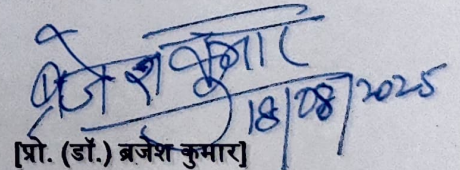 ब्रजेश कुमार
18/08/2025
[प्रो. (डॉ.) ब्रजेश कुमार]